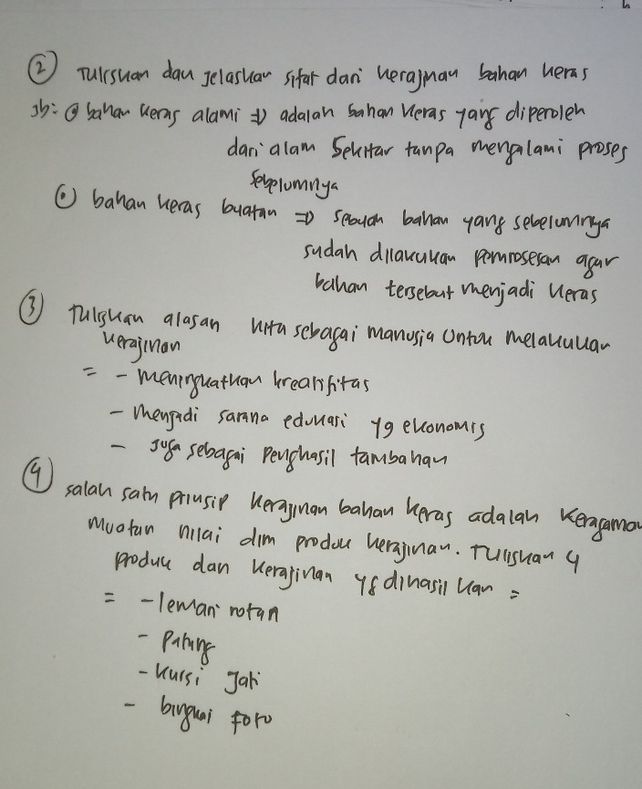 ② Tuliskan dan jelaskan sifat dari kerajinan bahan keras
Jb: @ bahan keras alami => adalah bahan keras yang diperoleh
dari alam sekitar tanpa mengalami proses
sebelumnya
bahan keras buatan => sebuah bahan yang sebelumnya
sudah dilakukan pemrosesan agar
bahan tersebut menjadi keras
③ Tuliskan alasan kita sebagai manusia untuk melakukan
kerajinan
= - meningkatkan kreatifitas
- menjadi sarana edukasi yg ekonomis
- juga sebagai penghasil tambahan
④ salah satu prinsip kerajinan bahan keras adalah keragaman
muatan nilai dlm produk kerajinan. Tuliskan 4
produk dan kerajinan yg dihasilkan =
= - lemari rotan
- patung
- kursi jati
- bingkai foto